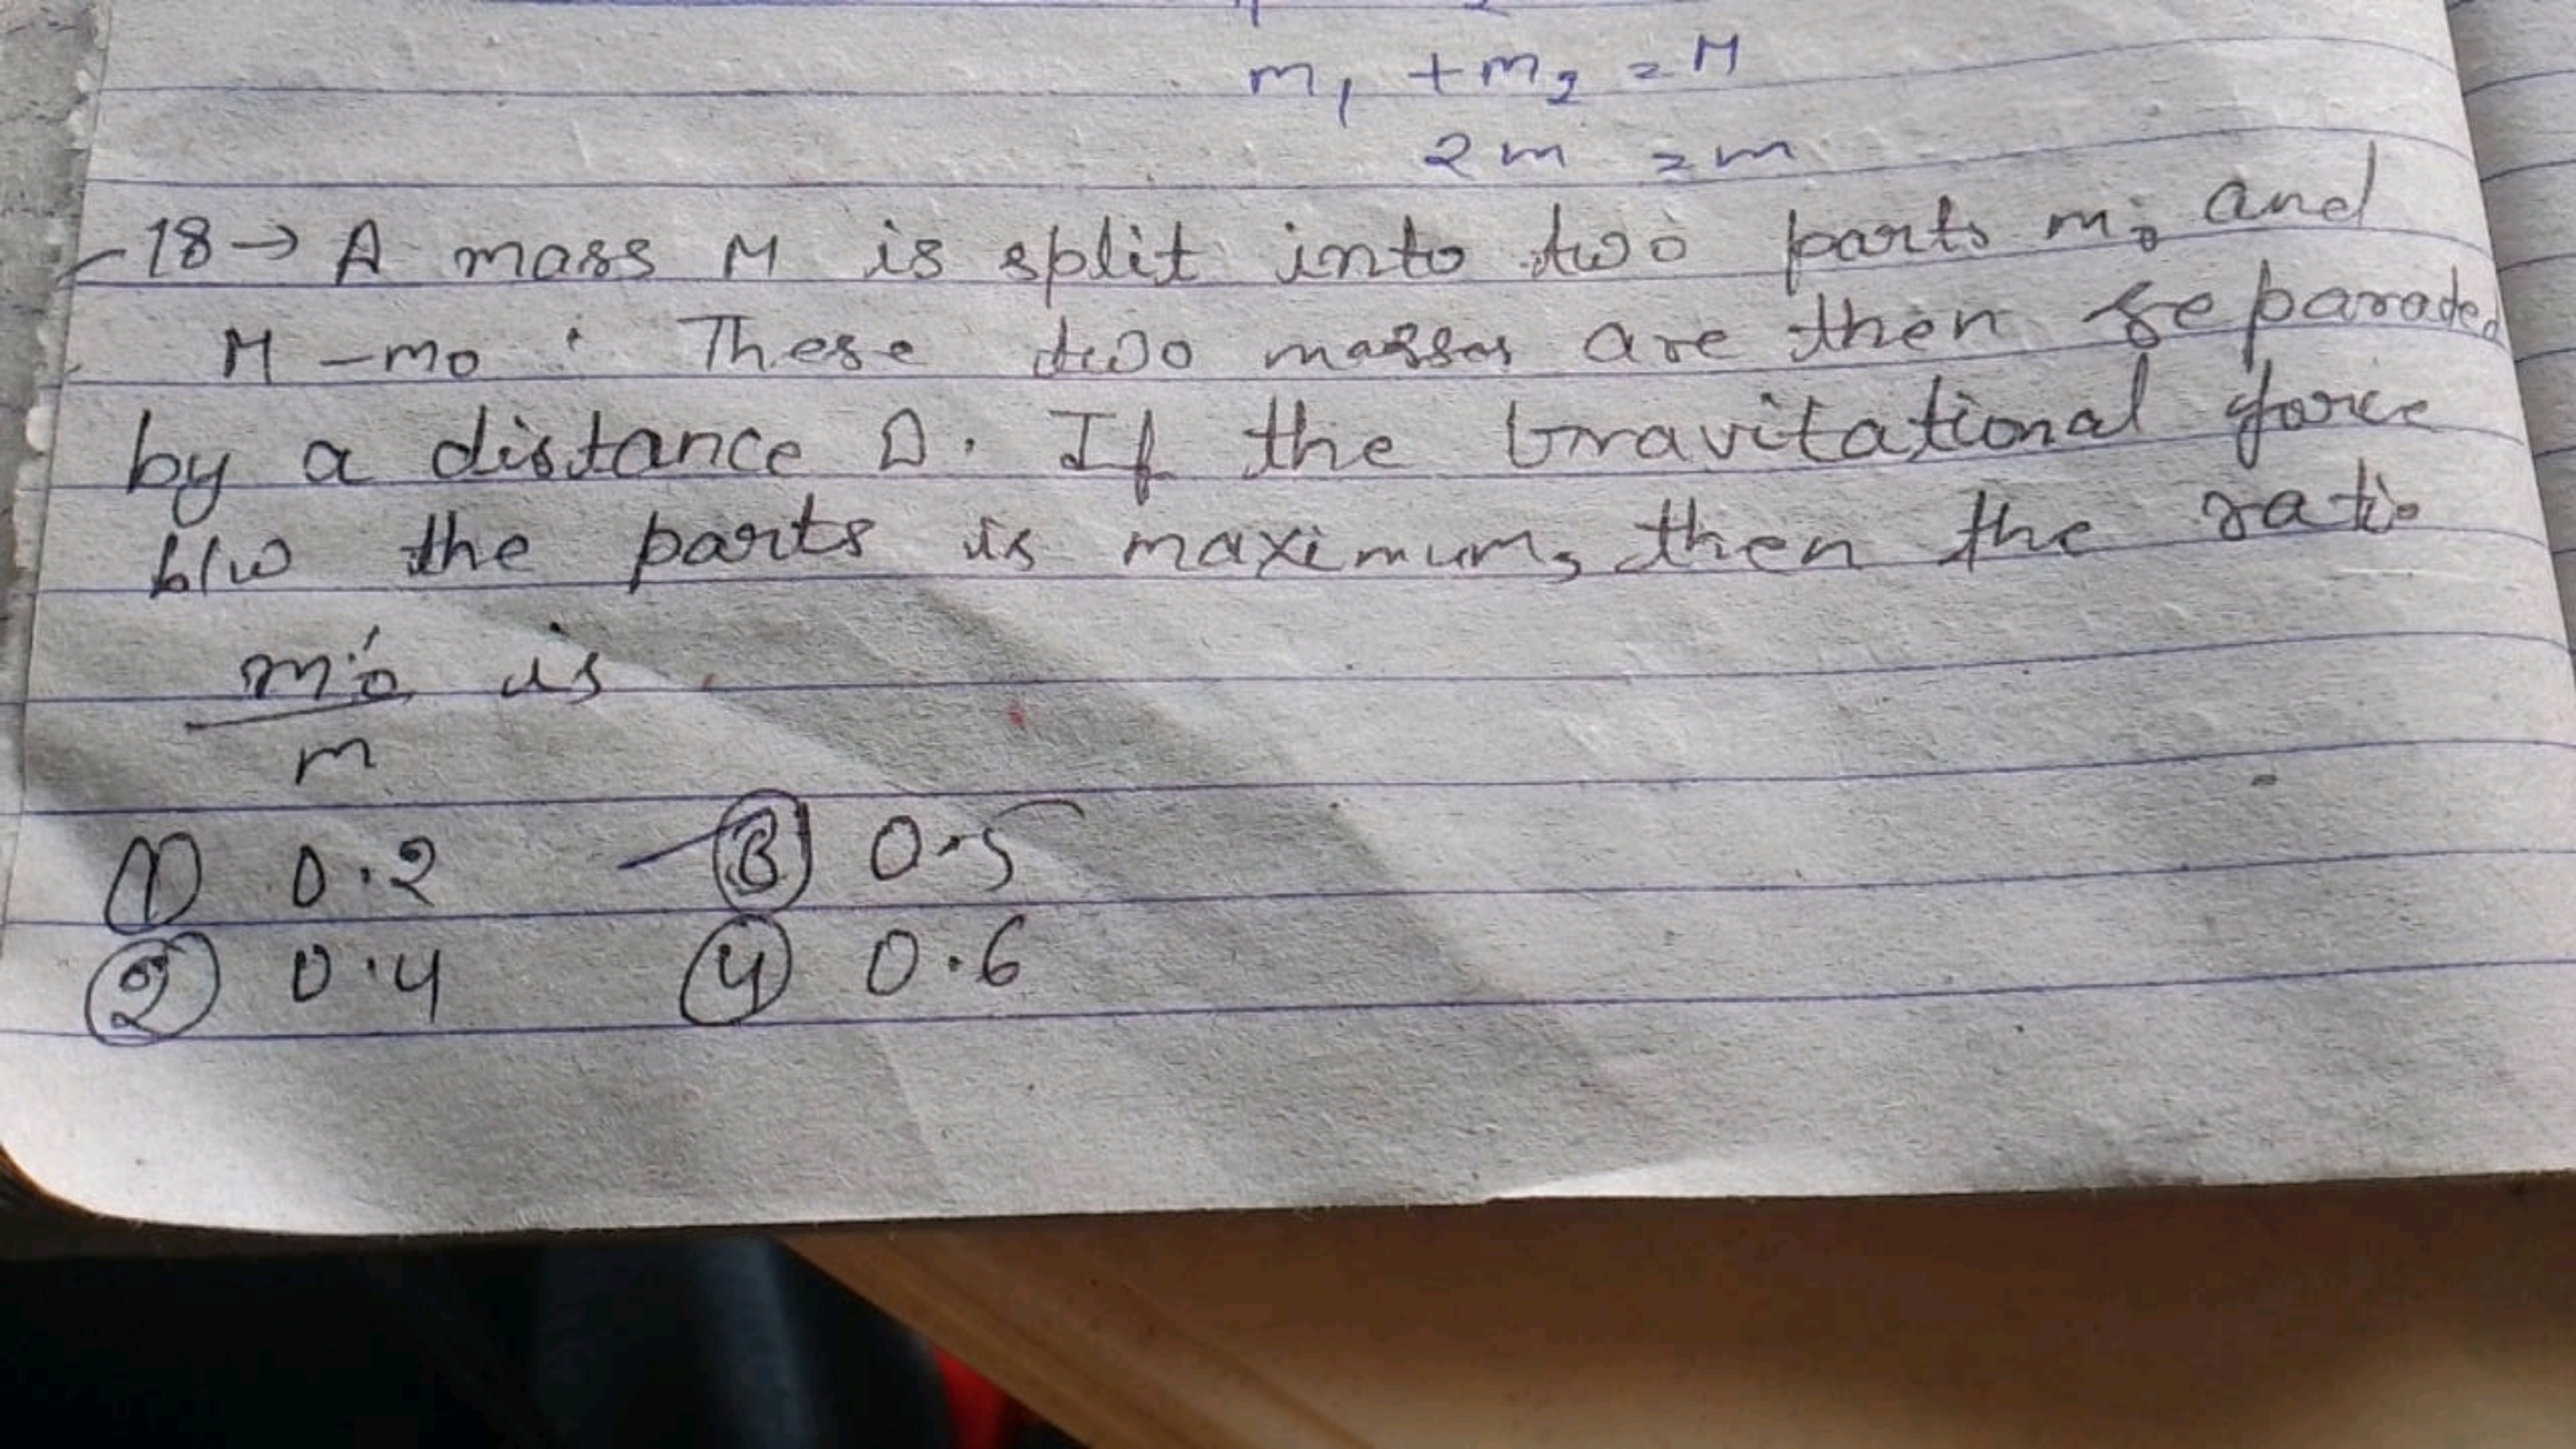 m₁ + m₂ = M
2m = m
18 → A mass M is split into two parts m₀ and
M - m₀ . These two masses are then separaded
by a distance D. If the Gravitational force
b/w the parts is maximum, then the ratio
m₀ is
m
① 0.2 ③ 0.5
② 0.4 ④ 0.6